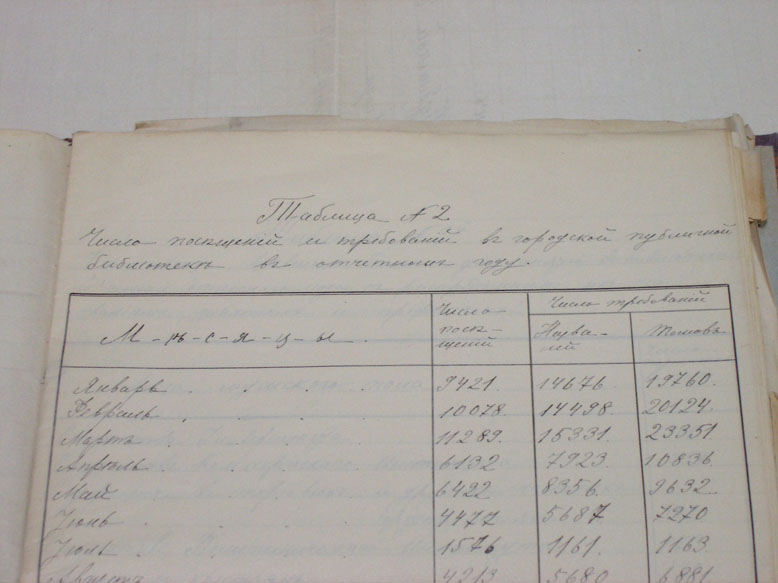 Таблица №2
Число посѣщеній и требованій въ городской публичной
библіотекѣ въ отчетномъ году.
М-ѣ-с-я-ц-ы.
Число посѣ-щеній
Число требованій
Назва-ній
Томовъ
Январь 9421. 14676. 19760.
Февраль 10078. 14498. 20124.
Мартъ 11289. 15331. 23351
Апрѣль 6132 7923. 10836.
Май 6422 8356. 9632.
Іюнь 4477 5687 7270.
Іюль 1576 1161. 1163.
Августъ 4213 5680 6881